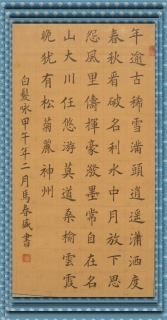 年逾古稀雪满頭逍遥瀟洒度
春秋看破名利水中月放下恩
怨風里儔揮豪潑墨常自在名
山大川任悠游莫道桑榆雲霞
晚犹有松菊麗神州
白髮咏甲午年二月馬春盛書